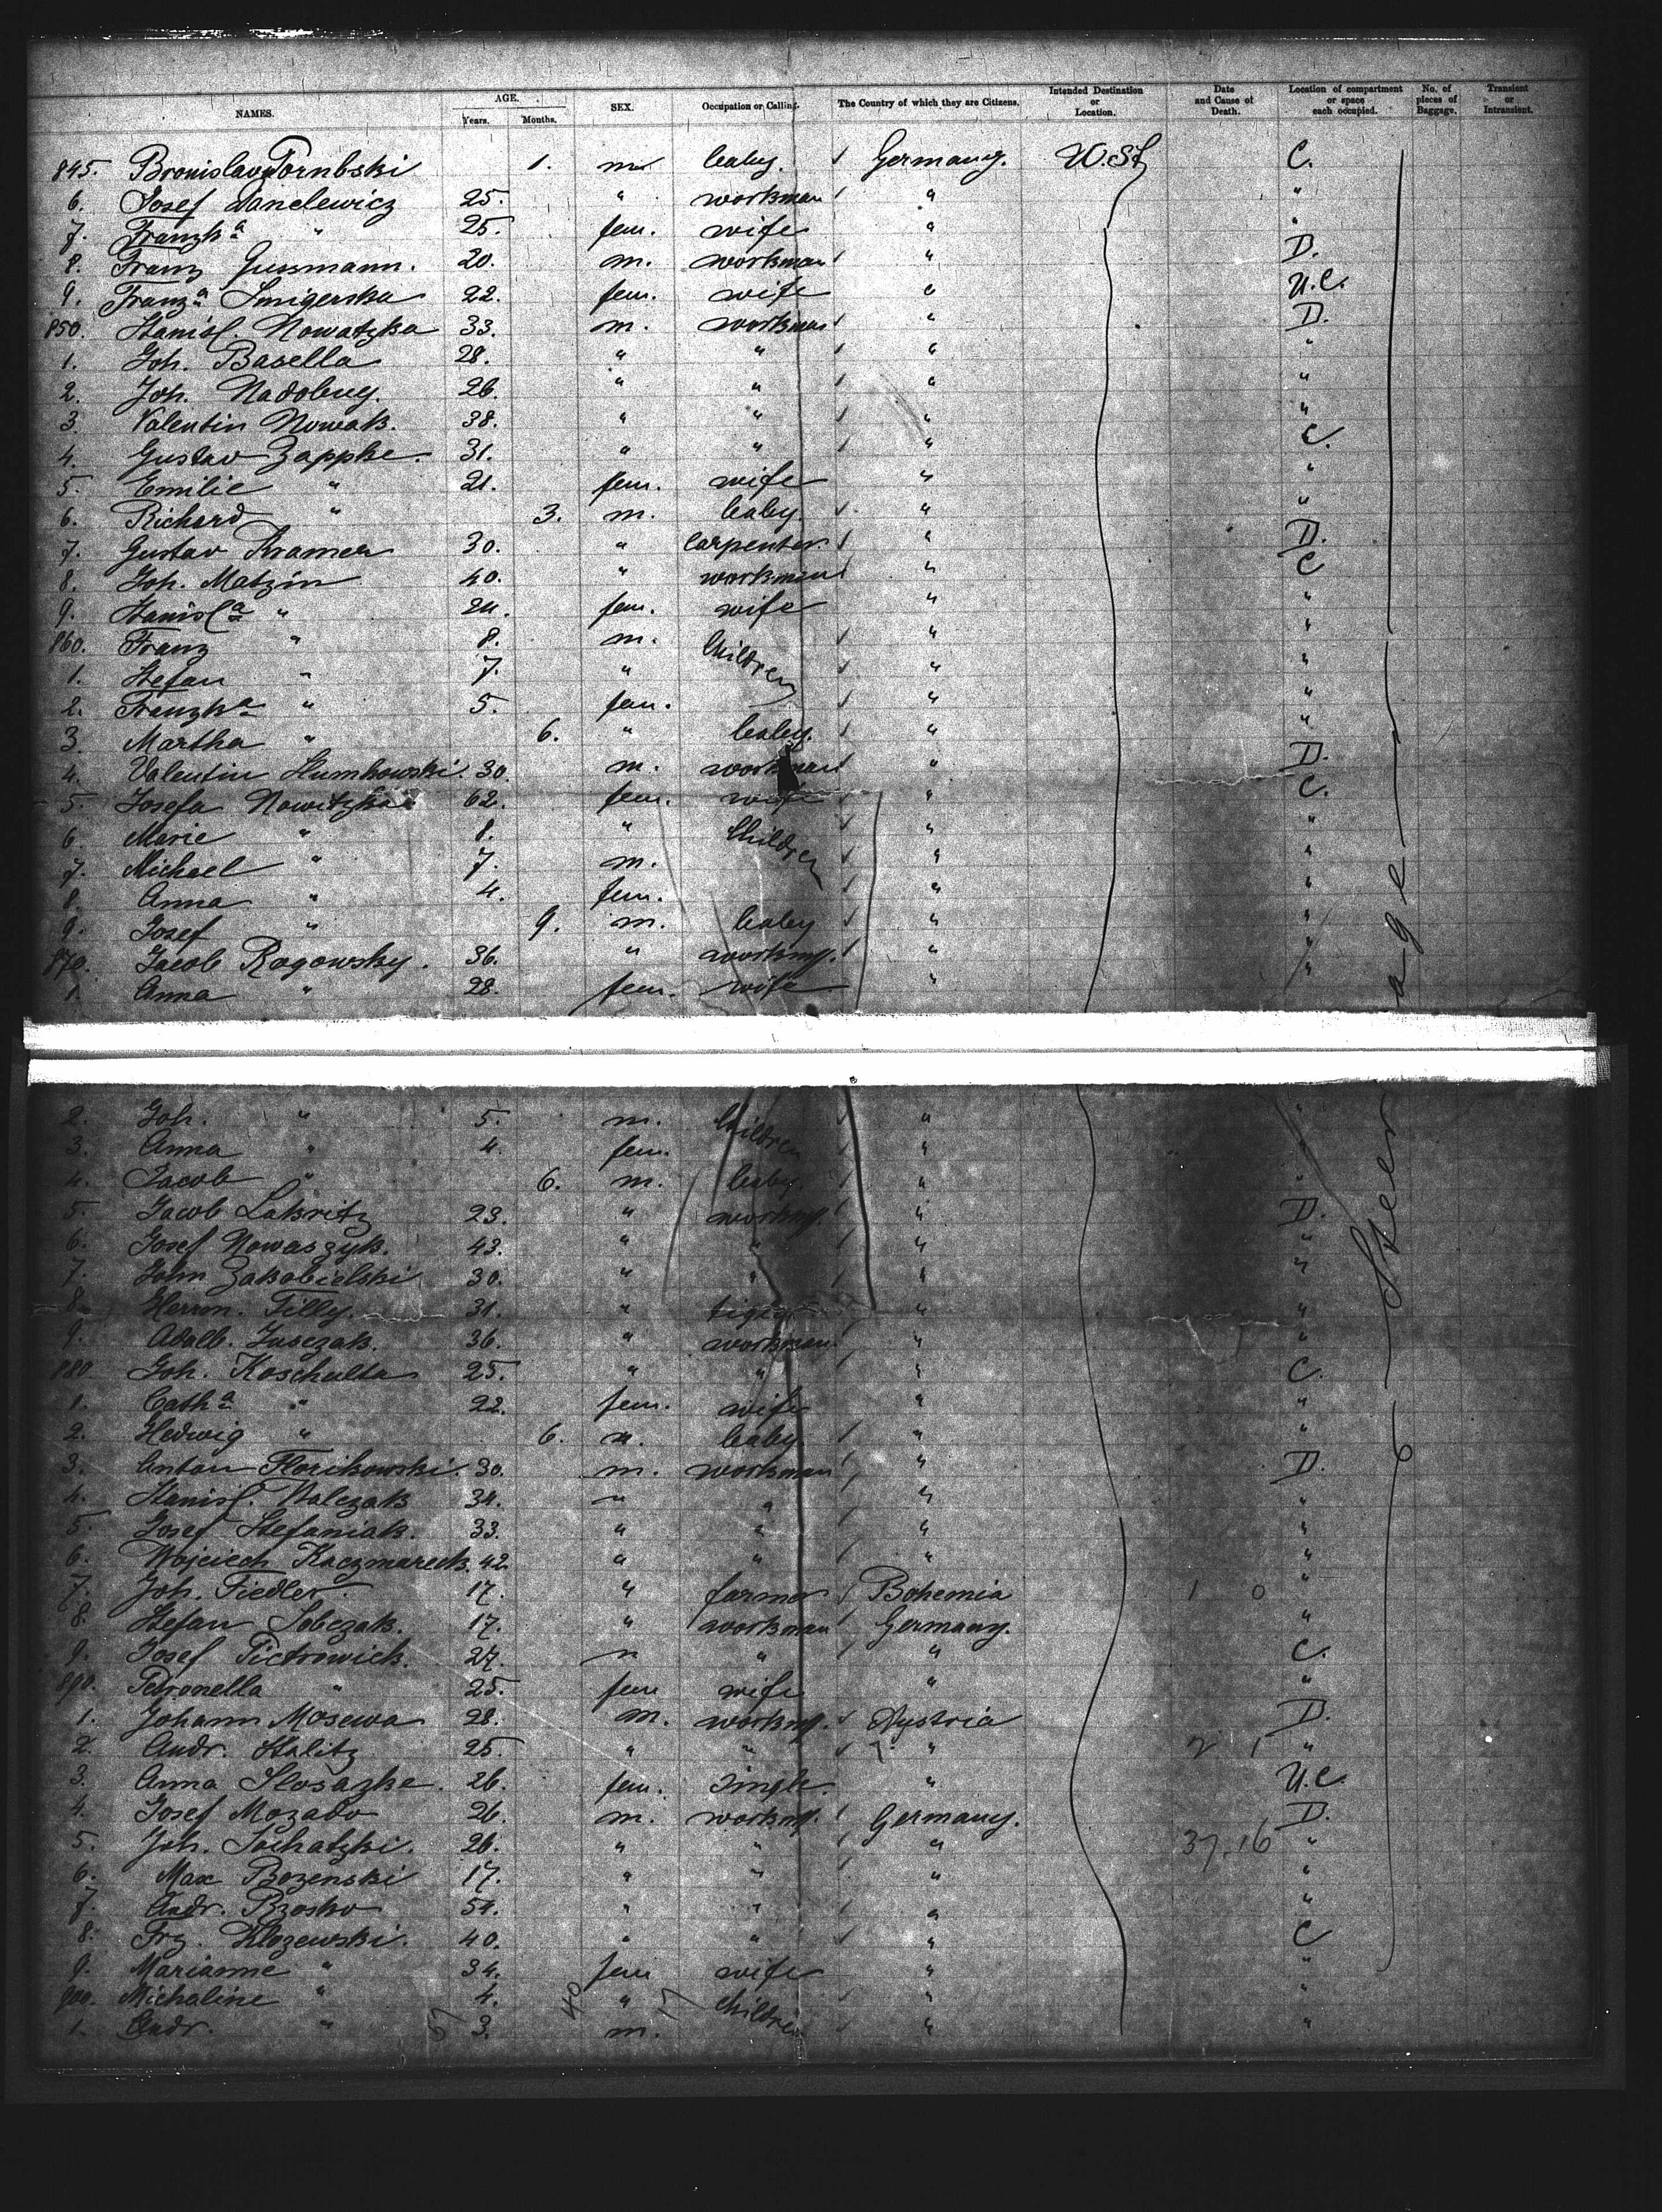 NAMES. AGE. Years. Months. SEX. Occupation or Calling. The Country of which they are Citizens. Intended Destination or Location. Date and Cause of Death. Location of compartment or space each occupied. No. of pieces of Baggage. Transient or Intransient.
845. Bronislav Tornbski 1. m baby. Germany. U.St. C.
6. Josef Danelewicz 25. " workman " "
7. Franzka " 25. fem. wife " "
8. Franz Gussmann. 20. m. workman " D.
9. Franza Smigerska 22. fem. wife " U.C.
850. Stanisl. Nowatzka 33. m. workman " D.
1. Joh. Basella 28. " " " "
2. Joh. Nadobny. 26. " " " "
3. Valentin Nowak. 38. " " " "
4. Gustav Zappke. 31. " " " C.
5. Emilie " 21. fem. wife " "
6. Richard " 3. m. baby. " "
7. Gustav Kramer 30. " Carpenter. " D.
8. Joh. Matzin 40. " workman " C
9. Stanisla " 24. fem. wife " "
860. Franz " 8. m. Children " "
1. Stefan " 7. " " "
2. Franzka " 5. fem. " "
3. Martha " 6. " baby. " "
4. Valentin Slumkowski. 30. m. workman " D.
5. Josefa Nowitzka 62. fem. wife " C.
6. Marie " 8. " Children " "
7. Michael " 7. m. " "
8. Anna " 4. fem. " "
9. Josef " 9. m. baby " "
870. Jacob Rogowsky. 36. " workm. " "
1. Anna " 28. fem. wife " "
2. Joh. " 5. m. Children " "
3. Anna " 4. fem. " "
4. Jacob " 6. m. baby. " "
5. Jacob Lakritz 23. " workm. " D.
6. Josef Nowaszyk. 43. " " " "
7. John Zakobielski 30. " " " "
8. Herm. Tilly. 31. " " "
9. Adalb. Jusczak. 36. " workman " "
880. Joh. Koschulta 25. " " " C.
1. Catha " 22. fem. wife " "
2. Hedwig " 6. " baby. " "
3. Anton Florikowski. 30. m. workman " D.
4. Stanisl. Walczak 34. " " " "
5. Josef Stefaniak. 33. " " " "
6. Wojciech Kaczmareck. 42. " " " "
7. Joh. Fiedler. 17. " farmer Bohemia 1 0 "
8. Stefan Sobczak. 17. " workman Germany. "
9. Josef Pietrowick. 27. " " " C.
890. Petronella " 25. fem wife " "
1. Johann Mosewa 28. m. workm. Austria D.
2. Andr. Stalitz 25. " " " 2 1 "
3. Anna Slosazke. 26. fem. Single " U.C.
4. Josef Mozado 26. m. workm. Germany. D.
5. Joh. Sochatzki. 26. " " " 37.16 "
6. Max Bozenski 17. " " " "
7. Andr. Brzosko 54. " " " "
8. Frz. Klozewski. 40. " " " C
9. Marianne " 34. fem wife " "
900. Michaline " 4. " Children " "
1. Andr. " 3. m. " "
57 40 17
Steerage